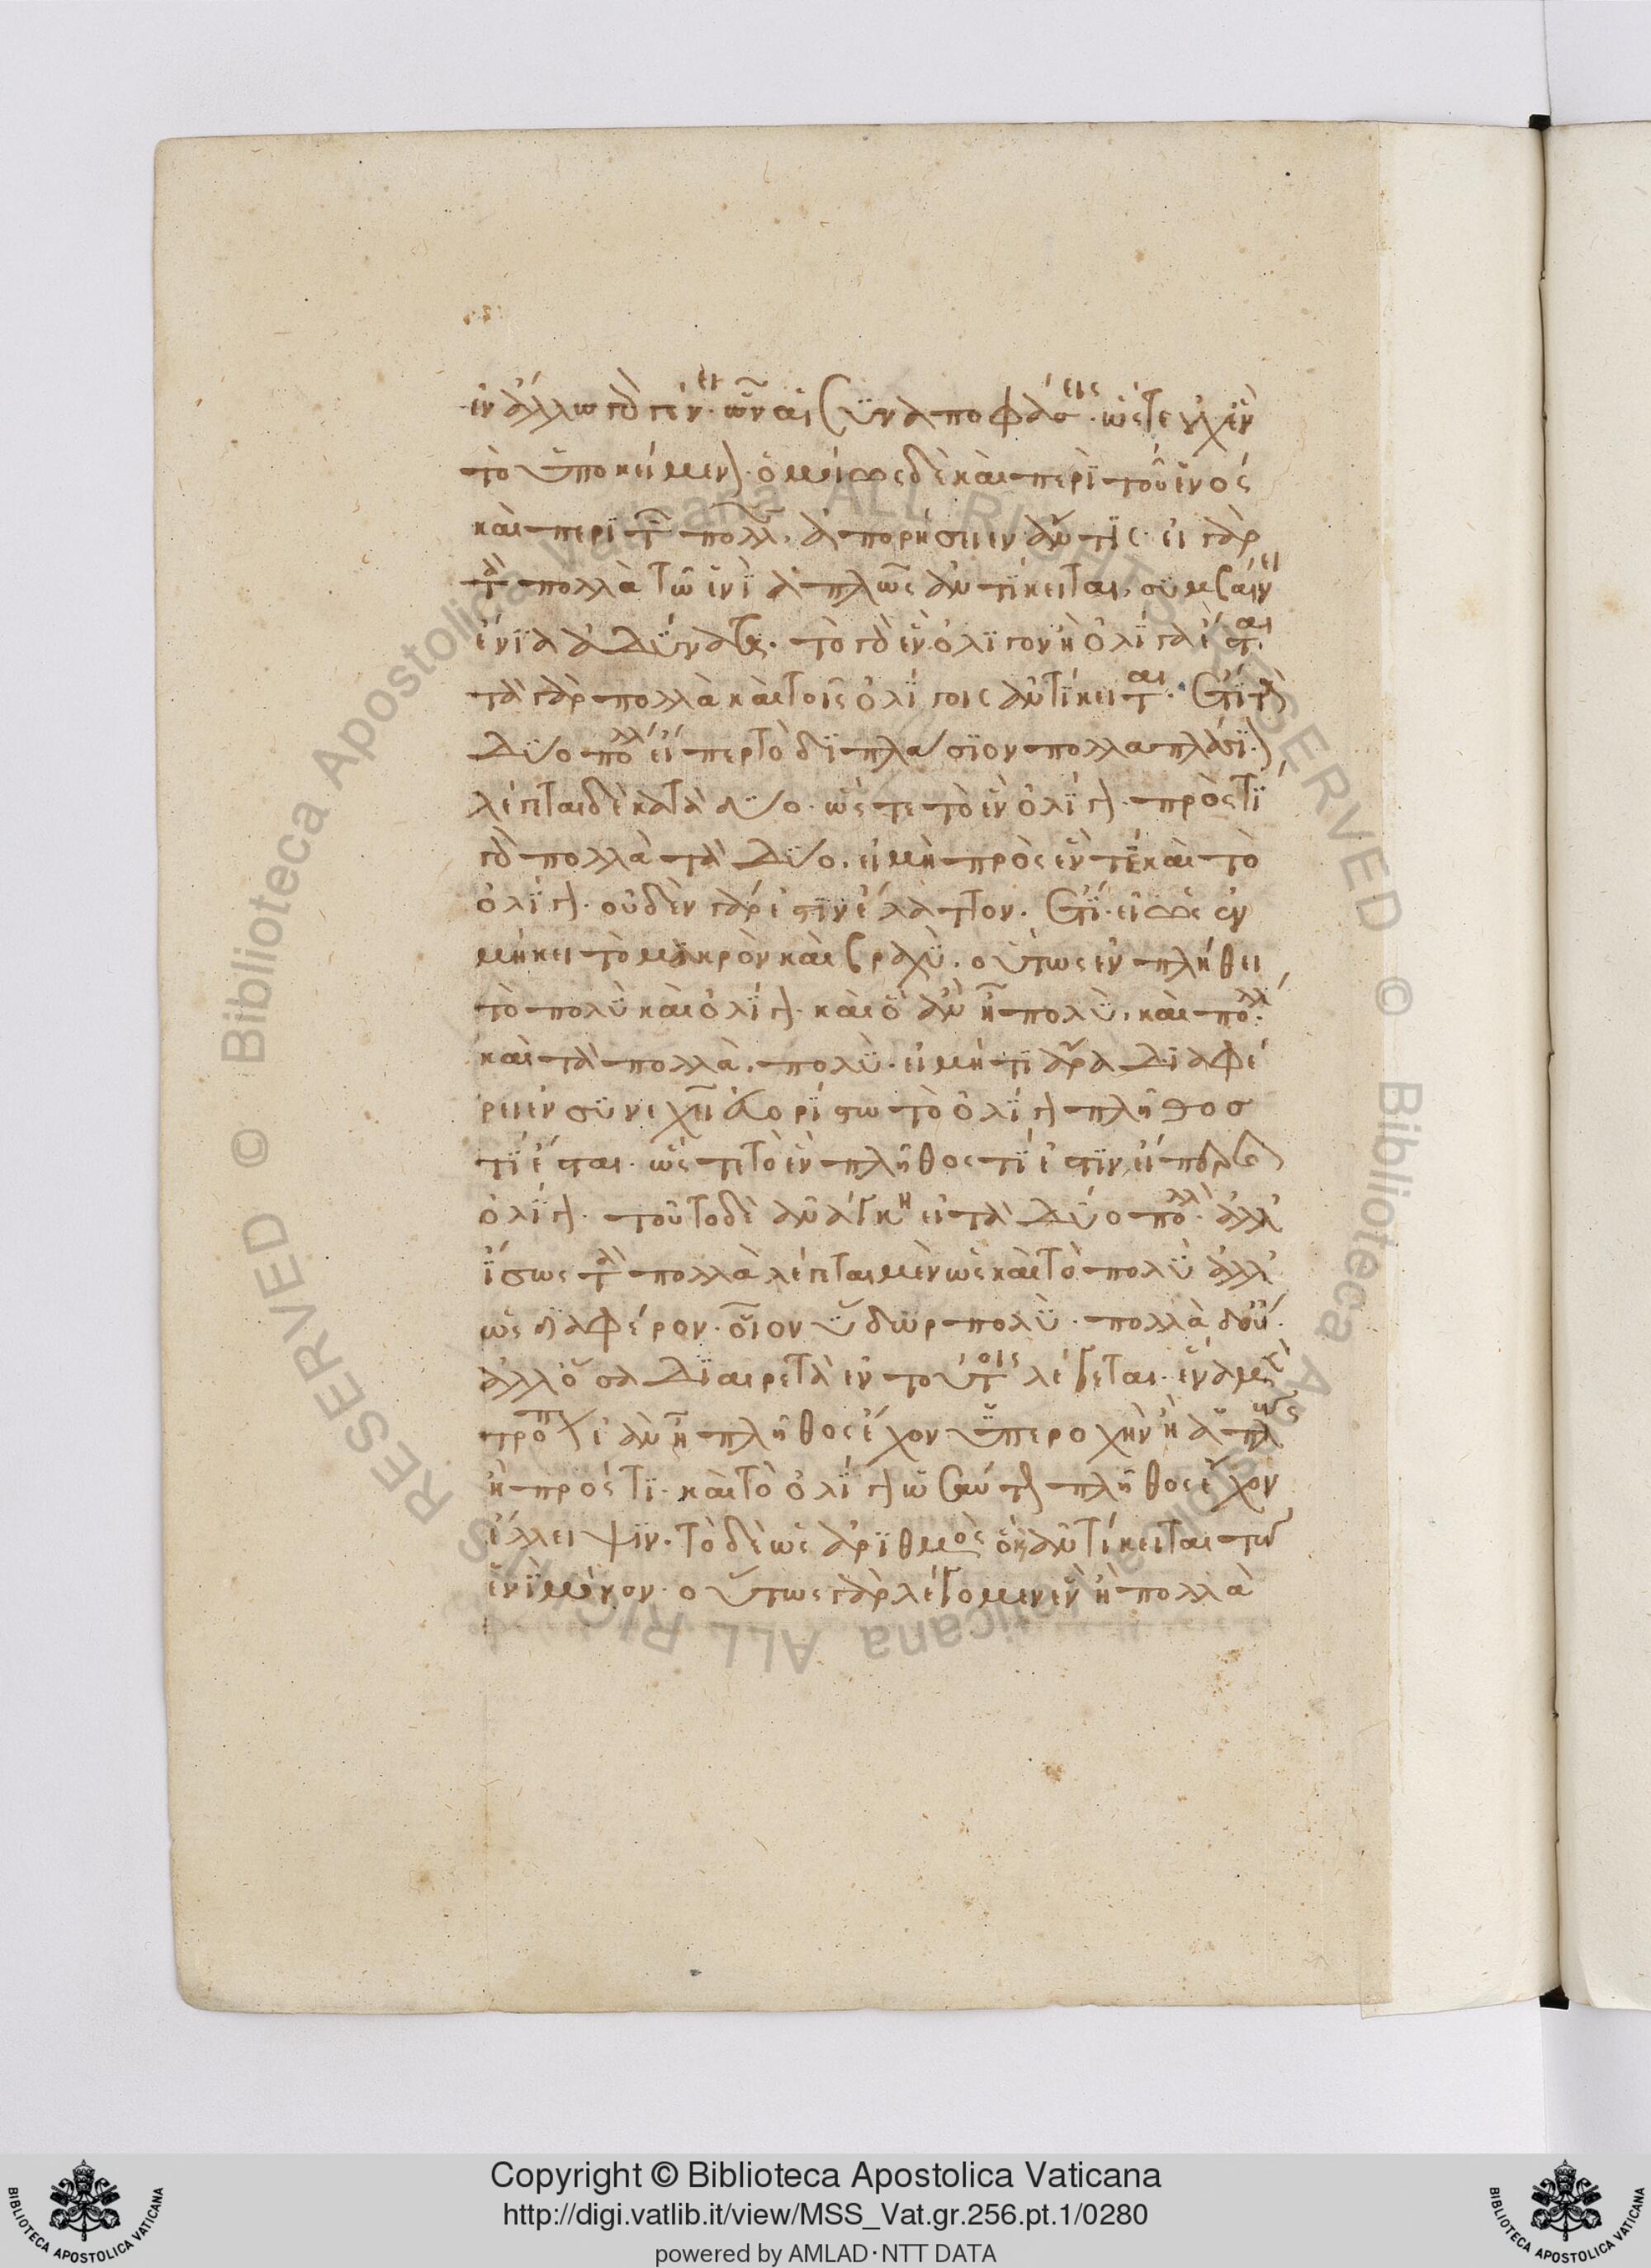 ἐν ἄλλω γὰρ γένει ὧν αἱ συναποφάσεις· ὥστε οὐχ ἓν
τὸ ὑποκείμενον. ὁμοίως δὲ καὶ περὶ τοῦ ἑνὸς
καὶ περὶ τῶν πολλῶν, ἀπορήσειεν ἄν τις· εἰ γὰρ
τὰ πολλὰ τῶ ἑνὶ ἁπλῶς ἀντίκειται, συμβαίνει
ἔνια ἀδύνατα. τὸ γὰρ ἓν ὀλίγον ἢ ὀλίγα ἔσται·
τὰ γὰρ πολλὰ καὶ τοῖς ὀλίγοις ἀντίκειται. ἔτι τὰ
δύο πολλὰ εἴπερ τὸ διπλάσιον πολλαπλάσιον
λέγεται δὲ κατὰ δύο· ὥστε τὸ ἓν ὀλίγον· πρὸς τί
γὰρ πολλὰ τὰ δύο, εἰ μὴ πρὸς ἕν τε καὶ τὸ
ὀλίγον· οὐδὲν γάρ ἐστιν ἔλαττον. ἔτι εἰ ὡς ἐν
μήκει τὸ μακρὸν καὶ βραχὺ, οὕτως ἐν πλήθει
τὸ πολὺ καὶ ὀλίγον· καὶ ὃ ἂν ἦ πολὺ, καὶ πολλά·
καὶ τὰ πολλὰ, πολύ· εἰ μή τι ἄρα διαφέ
ρει ἐν συνεχεῖ ἀορίστω τὸ ὀλίγον πλῆθος
τὶ ἔσται· ὥστε τὸ ἓν πλῆθος τί ἐστιν, εἴπερ
ὀλίγον· τοῦτο δὲ ἀνάγκη εἰ τὰ δύο πολλὰ· ἀλλ'
ἴσως τὰ πολλὰ λέγεται μὲν ὡς καὶ τὸ πολὺ ἀλλ'
ὡς διαφέρον· οἷον ὕδωρ πολὺ· πολλὰ δ' οὔ·
ἀλλ' ὅσα διαιρετὰ ἐν τούτοις λέγεται· ἕνα μὲν
τρόπον ἐὰν ἦ πλῆθος ἔχον ὑπεροχὴν ἢ ἁπλῶς
ἢ πρός τι· καὶ τὸ ὀλίγον ὡσαύτως πλῆθος ἔχον
ἔλλειψιν· τὸ δὲ ὡς ἀριθμὸς ὃ καὶ ἀντίκειται τῶ
ἑνὶ μόνον· οὕτως γὰρ λέγομεν ἓν ἢ πολλὰ
Copyright © Biblioteca Apostolica Vaticana
http://digi.vatlib.it/view/MSS_Vat.gr.256.pt.1/0280
powered by AMLAD·NTT DATA